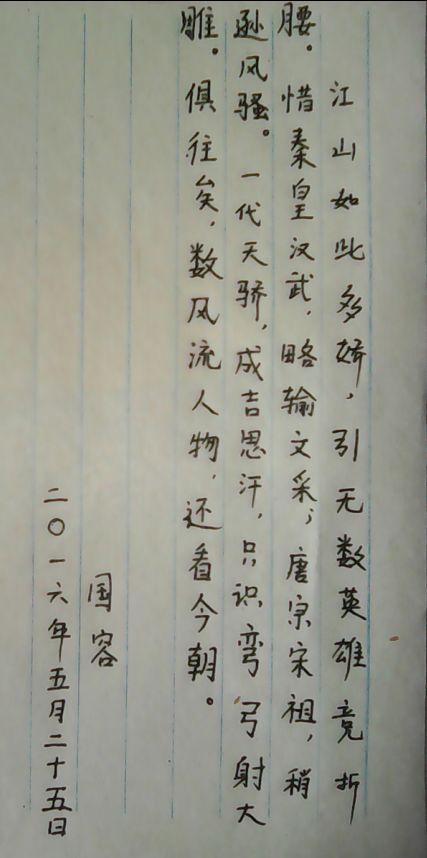 江山如此多娇，引无数英雄竞折
腰。惜秦皇汉武，略输文采；唐宗宋祖，稍
逊风骚。一代天骄，成吉思汗，只识弯弓射大
雕。俱往矣，数风流人物，还看今朝。
国容
二〇一六年五月二十五日